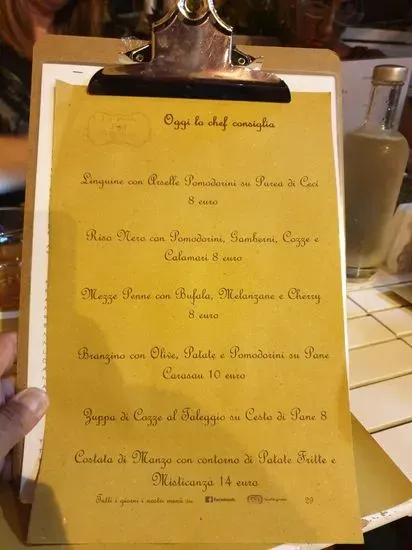 Oggi lo chef consiglia
Linguine con Arselle Pomodorini su Purea di Ceci
8 euro
Riso Nero con Pomodorini, Gamberni, Cozze e
Calamari 8 euro
Mezze Penne con Bufala, Melanzane e Cherry
8 euro
Branzino con Olive, Patate e Pomodorini su Pane
Carasau 10 euro
Zuppa di Cozze al Taleggio su Cesto di Pane 8
Costata di Manzo con contorno di Patate Fritte e
Misticanza 14 euro
Tutti i giorni i nostri menù su facebook 29